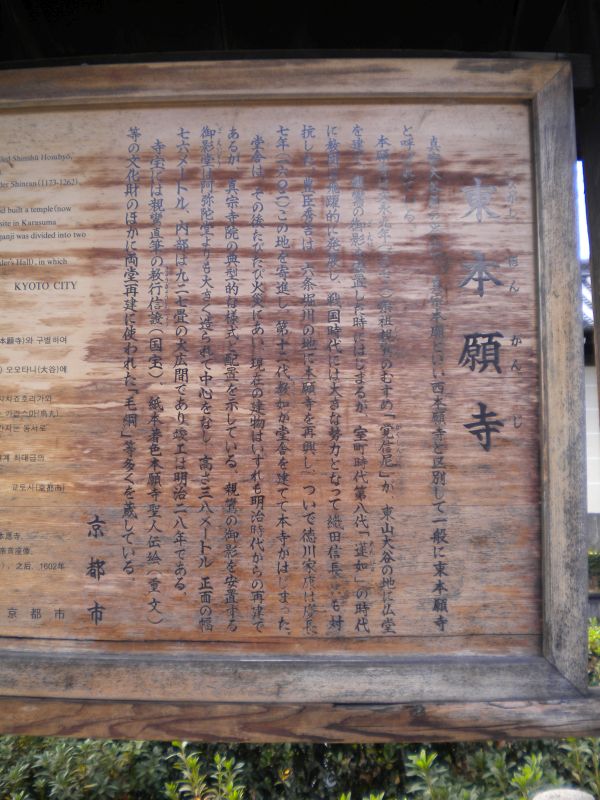 東本願寺
ほんがんじ
と呼ばれている。
「覚信尼」が、東山大谷の地に仏堂
を建て、親鸞の御影を安置した時にはじまるが、室町時代第八代「蓮如」の時代
に教団は飛躍的に発展し、戦国時代には大きな勢力となって織田信長とも対
抗した。豊臣秀吉は、六条堀川の地に本願寺を再興し、ついで徳川家康は慶長
七年(一六〇二)この地を寄進し、第十二代教如が堂舎を建てて本寺がはじまった。
堂舎は、その後たびたび火災にあい、現在の建物はいずれも明治時代からの再建で
あるが、真宗寺院の典型的な様式と配置を示している。親鸞の御影を安置する
御影堂は阿弥陀堂よりも大きく造られて中心をなし、高さ三八メートル、正面の幅
七六メートル、内部は九二七畳の大広間であり、竣工は明治二八年である。
寺宝には親鸞直筆の教行信證(国宝)、紙本着色本願寺聖人伝絵(重文)
等の文化財のほかに両堂再建に使われた「毛綱」等多くを蔵している。
京都市
led Shinshū Honbyō,
der Shinran (1173-1262),
d built a temple (now
site in Karasuma
ganji was divided into two
der's Hall), in which
KYOTO CITY
本願寺)와 구별하여
) 오오타니(大谷)에
가라스마(烏丸)
교토시(京都市)
, 之后, 1602年
京都市